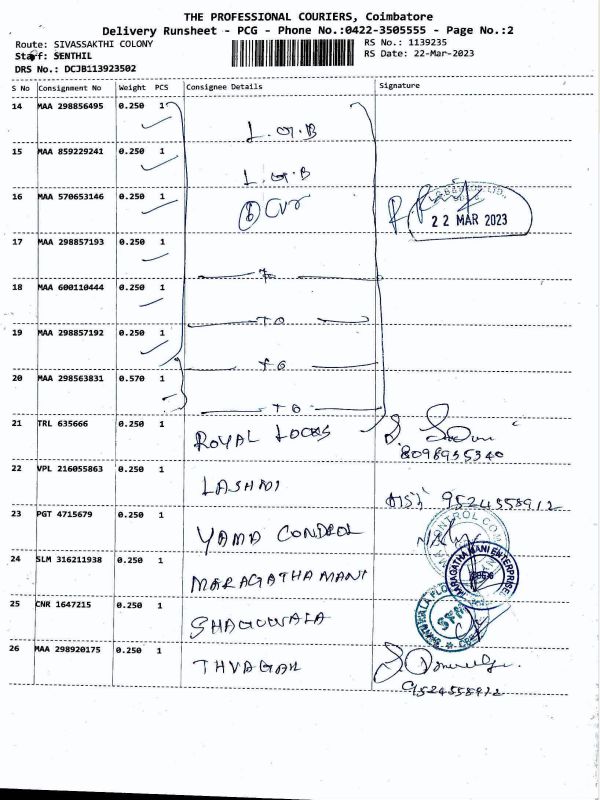 THE PROFESSIONAL COURIERS, Coimbatore
Delivery Runsheet - PCG - Phone No.:0422-3505555 - Page No.:2
Route: SIVASSAKTHI COLONY
RS No.: 1139235
Staff: SENTHIL
RS Date: 22-Mar-2023
DRS No.: DCJB113923502
S No Consignment No Weight PCS Consignee Details Signature
14 MAA 298856495 0.250 1
L.G.B
15 MAA 859229241 0.250 1
L.G.B
16 MAA 570653146 0.250 1
22 MAR 2023
17 MAA 298857193 0.250 1
18 MAA 600110444 0.250 1
TO
19 MAA 298857192 0.250 1
TO
20 MAA 298563831 0.570 1
TO
21 TRL 635666 0.250 1
ROYAL LOCKS
8098935340
22 VPL 216055863 0.250 1
LASHMI
9524558912
23 PGT 4715679 0.250 1
YAMA CONDROL
24 SLM 316211938 0.250 1
MARAGATHAMANI
MARAGATHA MANI ENTERPRISES
25 CNR 1647215 0.250 1
SFM
26 MAA 298920175 0.250 1
THYAGAR
9524558912